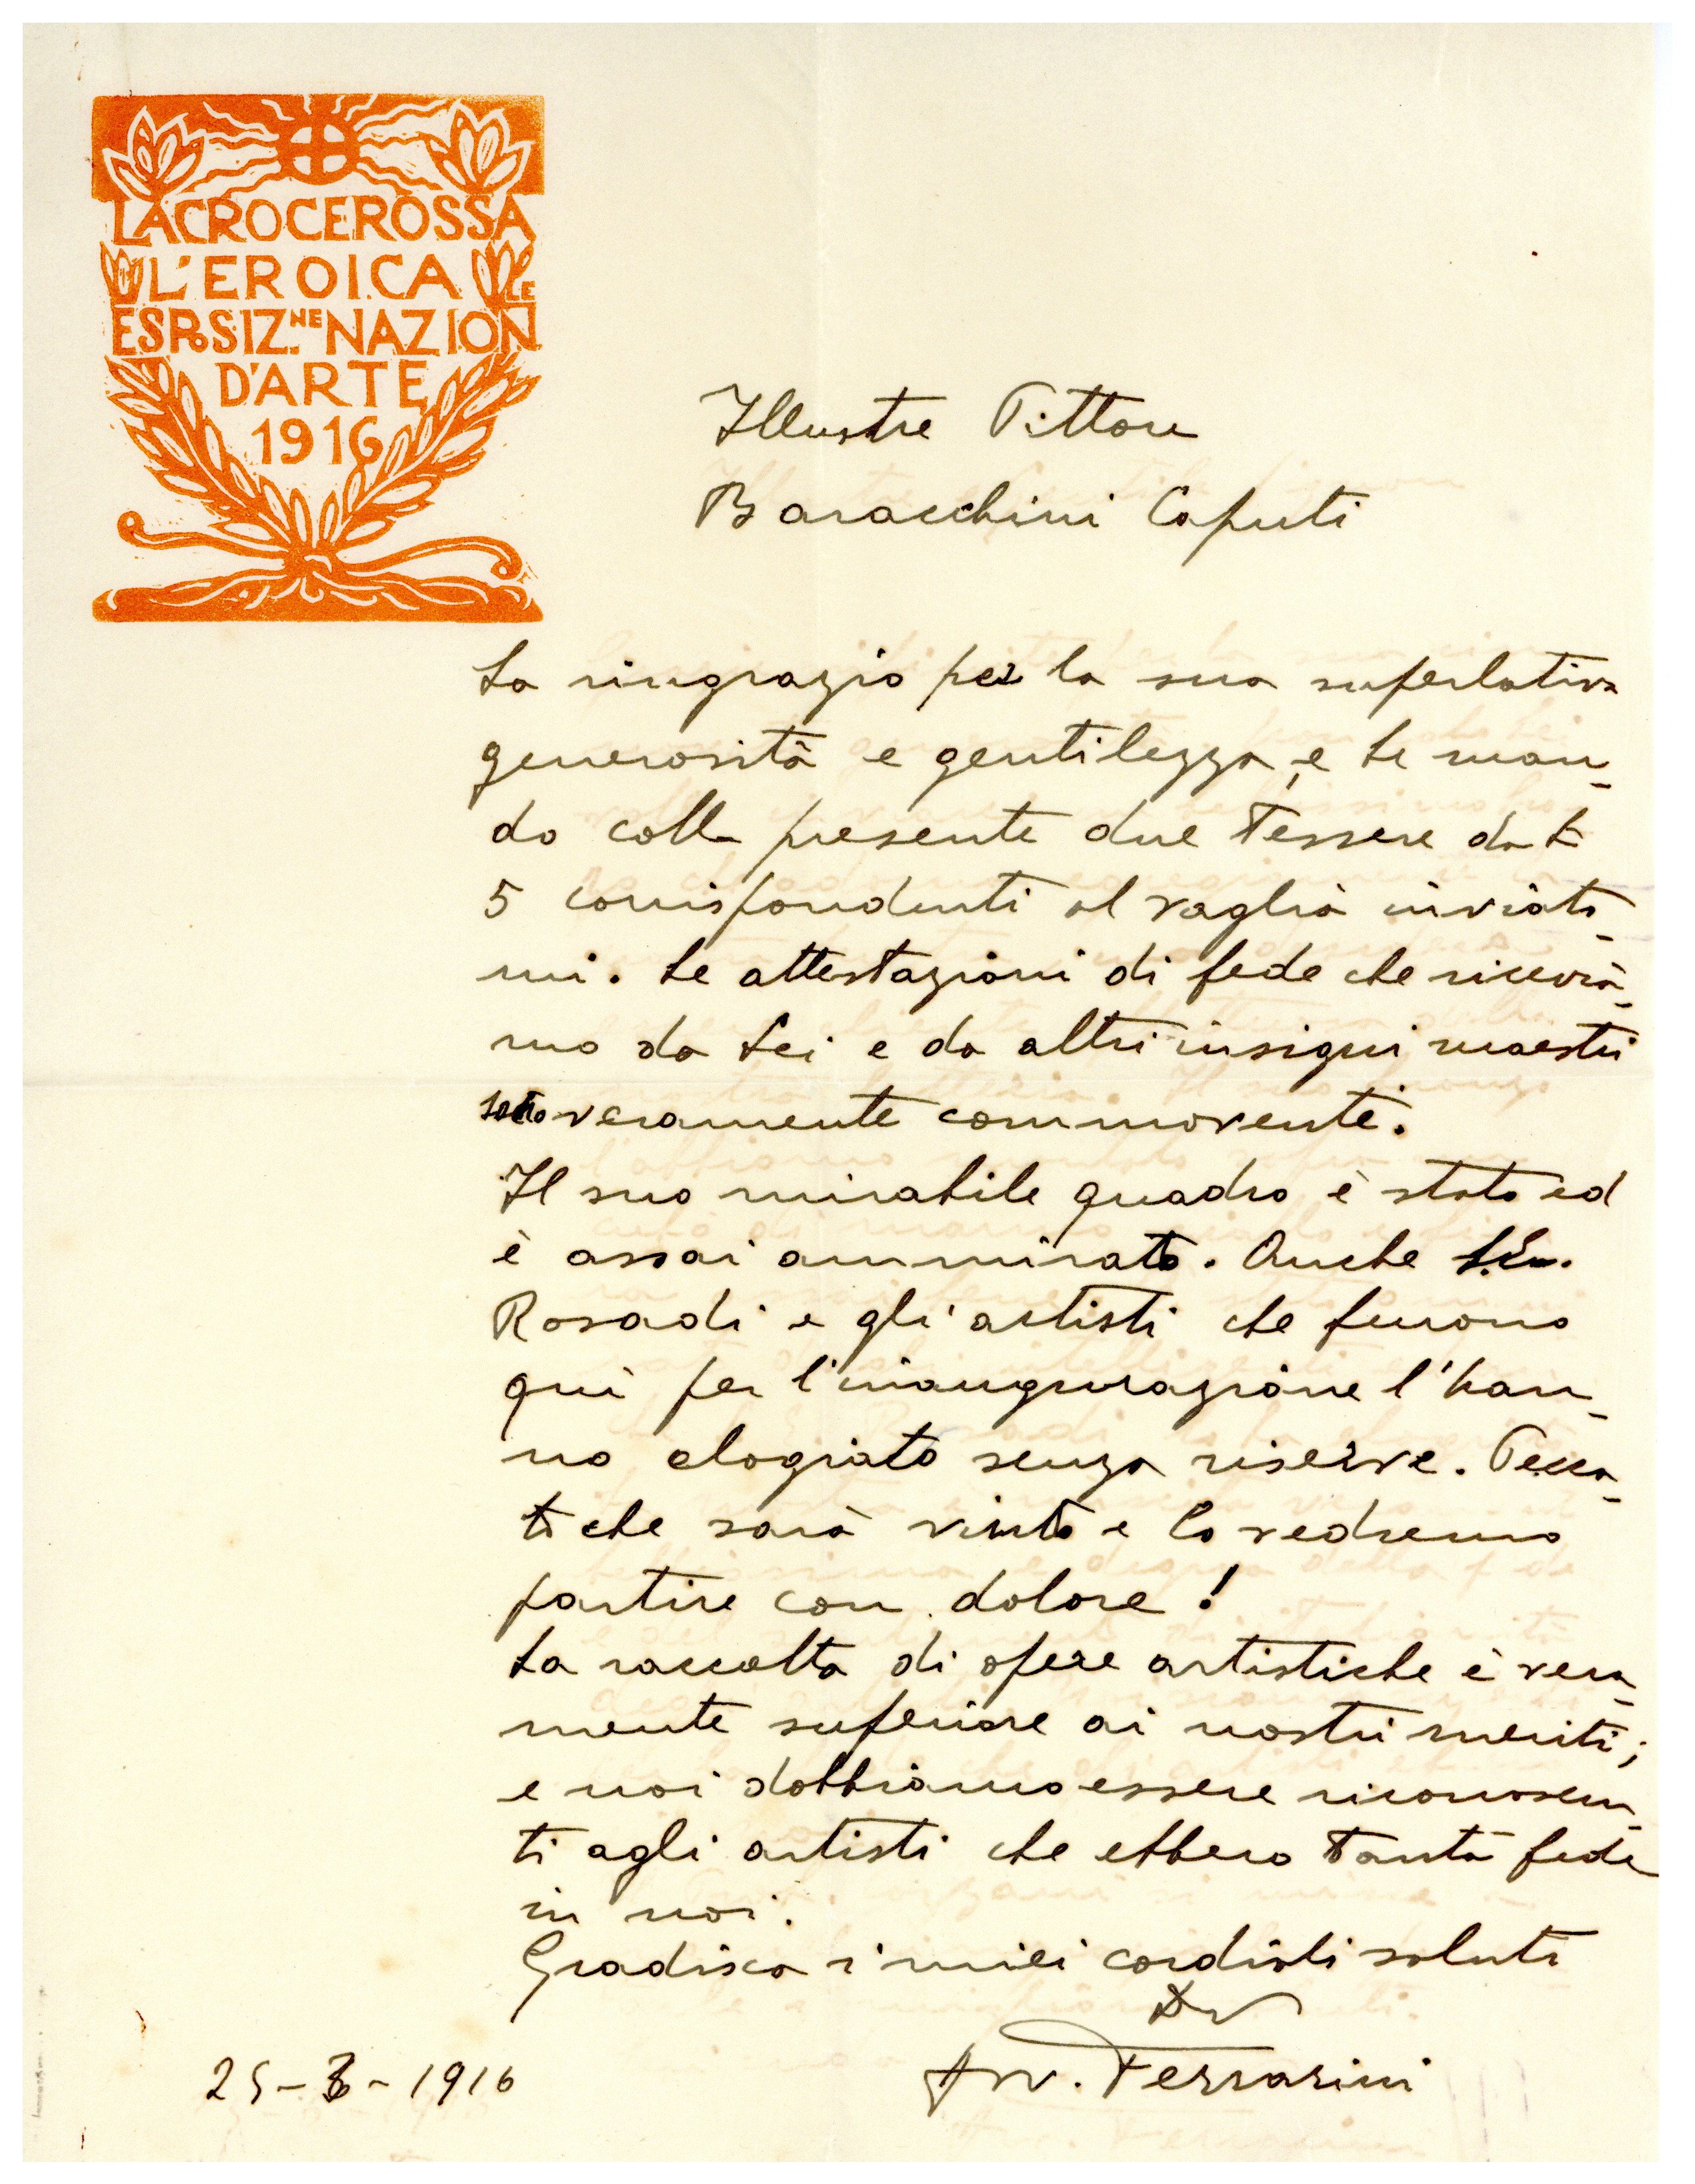 LA CROCE ROSSA
L'EROICA
ESPOSIZ.NE NAZIONLE
D'ARTE
1916
Illustre Pittore
Baracchini Caputi
La ringrazio per la sua superlativa
generosità e gentilezza, e Le man-
do colla presente due Tessere da L
5 corrispondenti al vaglia inviato-
mi. Le attestazioni di fede che ricevia-
mo da Lei e da altri insigni maestri
sono veramente commovente.
Il suo mirabile quadro è stato ed
è assai ammirato. Anche S.E.
Rosadi e gli artisti che furono
qui per l'inaugurazione l'han-
no elogiato senza riserve. Pecca-
to che sarà vinto e lo vedremo
partire con dolore!
La raccolta di opere artistiche è vera-
mente superiore ai nostri meriti;
e noi dobbiamo essere riconoscen-
ti agli artisti che ebbero tanta fede
in noi.
Gradisca i miei cordiali saluti
Avv. Ferrarini
25- -1916